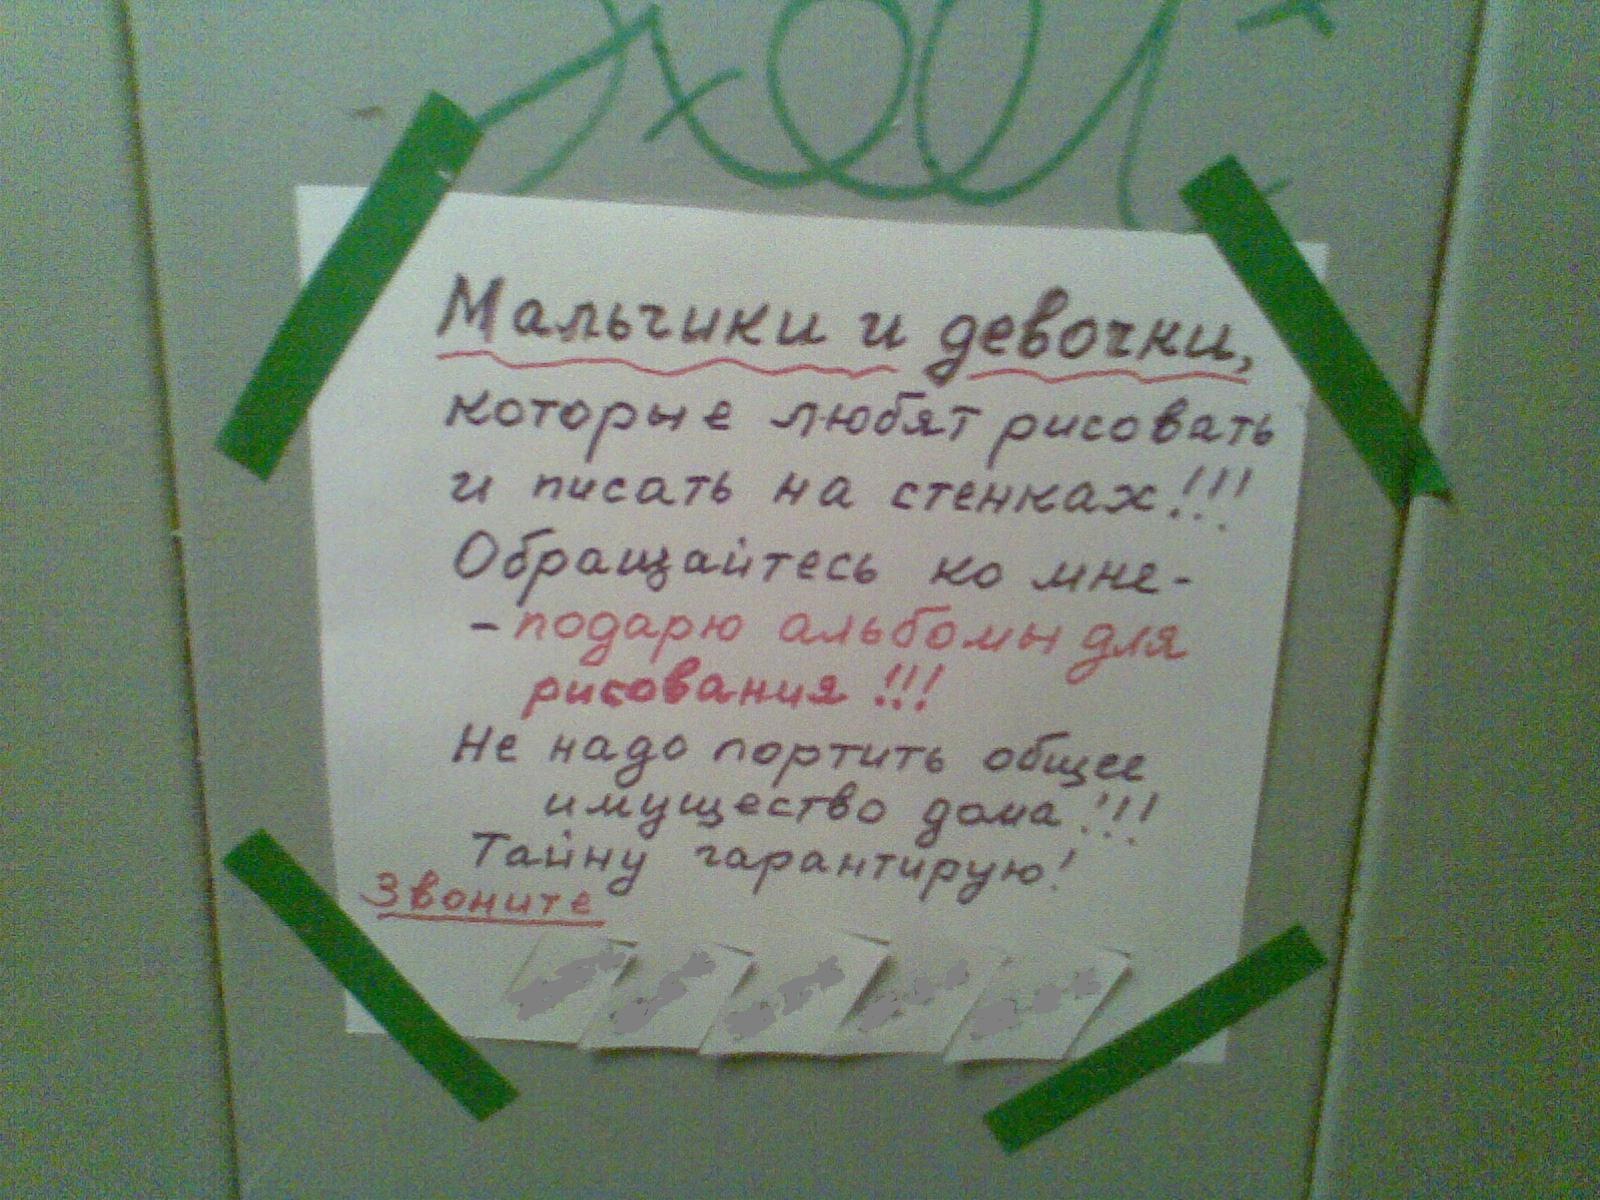 Мальчики и девочки,
которые любят рисовать
и писать на стенках!!!
Обращайтесь ко мне-
-подарю альбомы для
рисования!!!
Не надо портить общее
имущество дома!!!
Тайну гарантирую!
Звоните